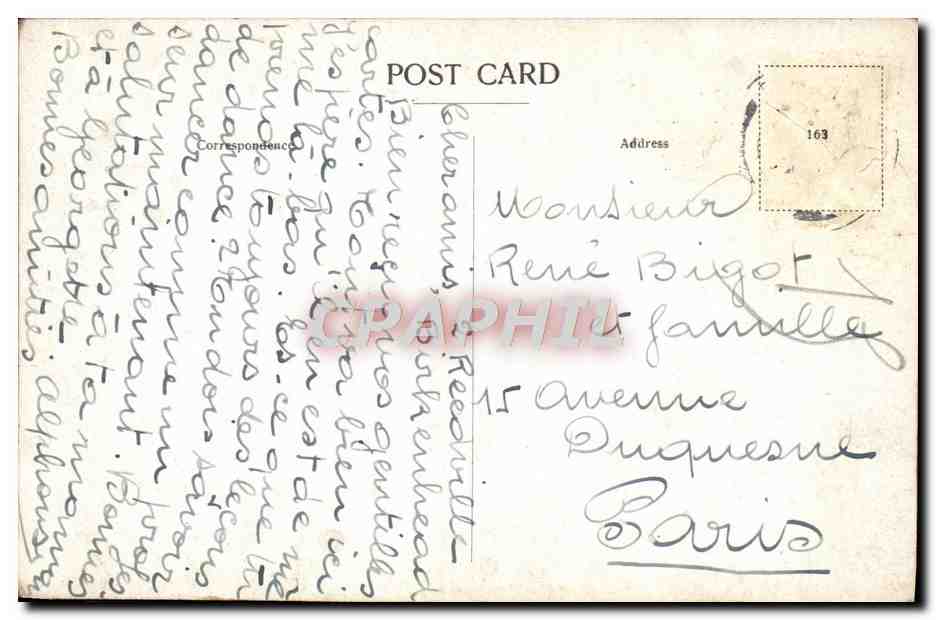 POST CARD
Correspondence
Address
163
Cher amis,
Birkenhead
Bien reçu vos gentilles
cartes. Tout va bien ici
j'espère qu'il en est de
même là-bas. Es-ce que tu
prends toujours des leçons
de dance? tu dois savoir
danser comme un
seur maintenant. Bondes
salutations à ta maman
et à Georgette. Bonnes
Bonnes amitiés. Alphonse
Monsieur
René Bigot
et famille
15 Avenue
Duquesne
Paris
CPAPHIL